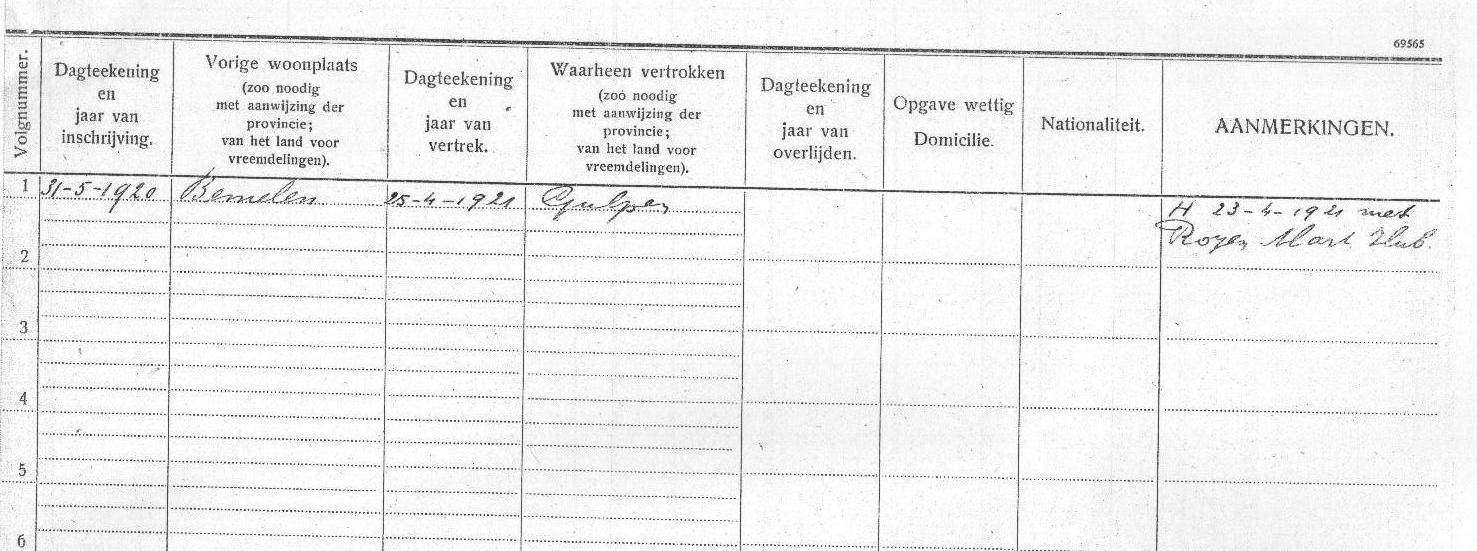 69565
Volgnummer.
Dagteekening
en
jaar van
inschrijving.
Vorige woonplaats
(zoo noodig
met aanwijzing der
provincie;
van het land voor
vreemdelingen).
Dagteekening
en
jaar van
vertrek.
Waarheen vertrokken
(zoo noodig
met aanwijzing der
provincie;
van het land voor
vreemdelingen).
Dagteekening
en
jaar van
overlijden.
Opgave wettig
Domicilie.
Nationaliteit.
AANMERKINGEN.
1 31-5-1920 Bemelen 25-4-1921 Gulpen
H 23-4-1921 met
Royen Mart. Hub.
2
3
4
5
6